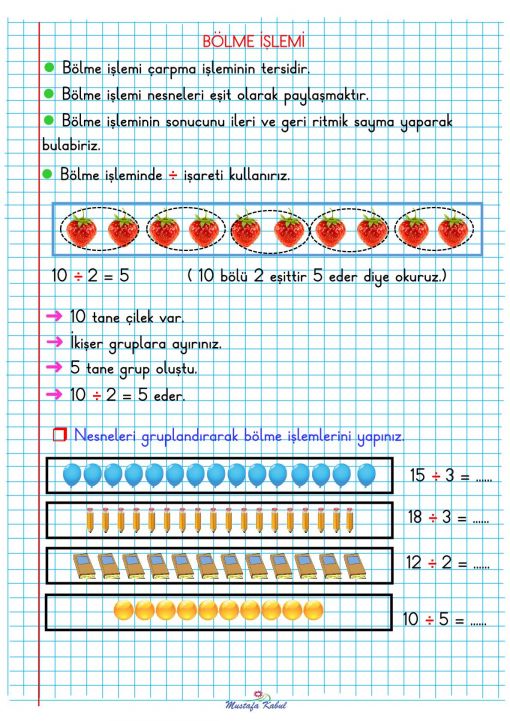 BÖLME İŞLEMİ
Bölme işlemi çarpma işleminin tersidir.
Bölme işlemi nesneleri eşit olarak paylaşmaktır.
Bölme işleminin sonucunu ileri ve geri ritmik sayma yaparak
bulabiriz.
Bölme işleminde ÷ işareti kullanırız.
10 ÷ 2 = 5 ( 10 bölü 2 eşittir 5 eder diye okuruz.)
10 tane çilek var.
İkişer gruplara ayırınız.
5 tane grup oluştu.
10 ÷ 2 = 5 eder.
Nesneleri gruplandırarak bölme işlemlerini yapınız.
15 ÷ 3 = ......
18 ÷ 3 = ......
12 ÷ 2 = ......
10 ÷ 5 = ......
Mustafa Kabul